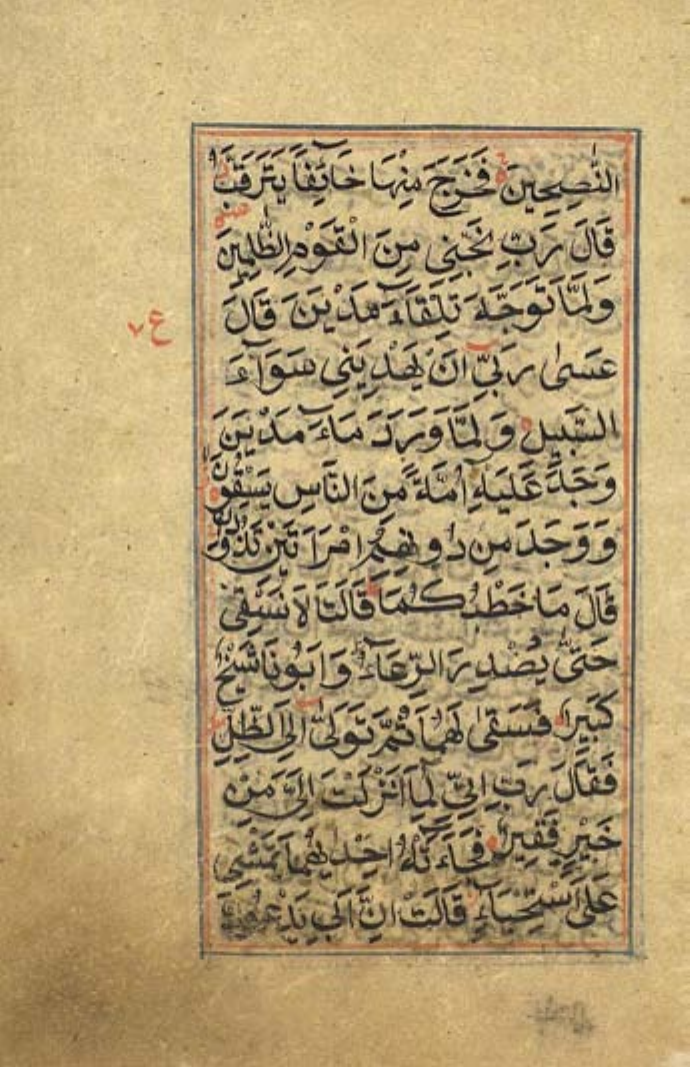 النّٰصِحِينَ فَخَرَجَ مِنْهَا خَآئِفًا يَتَرَقَّبُ
قَالَ رَبِّ نَجِّنِى مِنَ الْقَوْمِ الظّٰلِمِينَ
وَلَمَّا تَوَجَّهَ تِلْقَآءَ مَدْيَنَ قَالَ
ع ٧
عَسٰى رَبِّىٓ اَنْ يَهْدِيَنِى سَوَآءَ
السَّبِيلِ وَلَمَّا وَرَدَ مَآءَ مَدْيَنَ
وَجَدَ عَلَيْهِ اُمَّةً مِنَ النَّاسِ يَسْقُونَ
وَوَجَدَ مِنْ دُونِهِمُ امْرَاَتَيْنِ تَذُودٰنِ
قَالَ مَا خَطْبُكُمَا قَالَتَا لَا نَسْقِى
حَتّٰى يُصْدِرَ الرِّعَآءُ وَاَبُونَا شَيْخٌ
كَبِيرٌ فَسَقٰى لَهُمَا ثُمَّ تَوَلّٰىٓ اِلَى الظِّلِّ
فَقَالَ رَبِّ اِنِّى لِمَآ اَنْزَلْتَ اِلَىَّ مِنْ
خَيْرٍ فَقِيرٌ فَجَآءَتْهُ اِحْدٰىهُمَا تَمْشِى
عَلَى اسْتِحْيَآءٍ قَالَتْ اِنَّ اَبِى يَدْعُوكَ